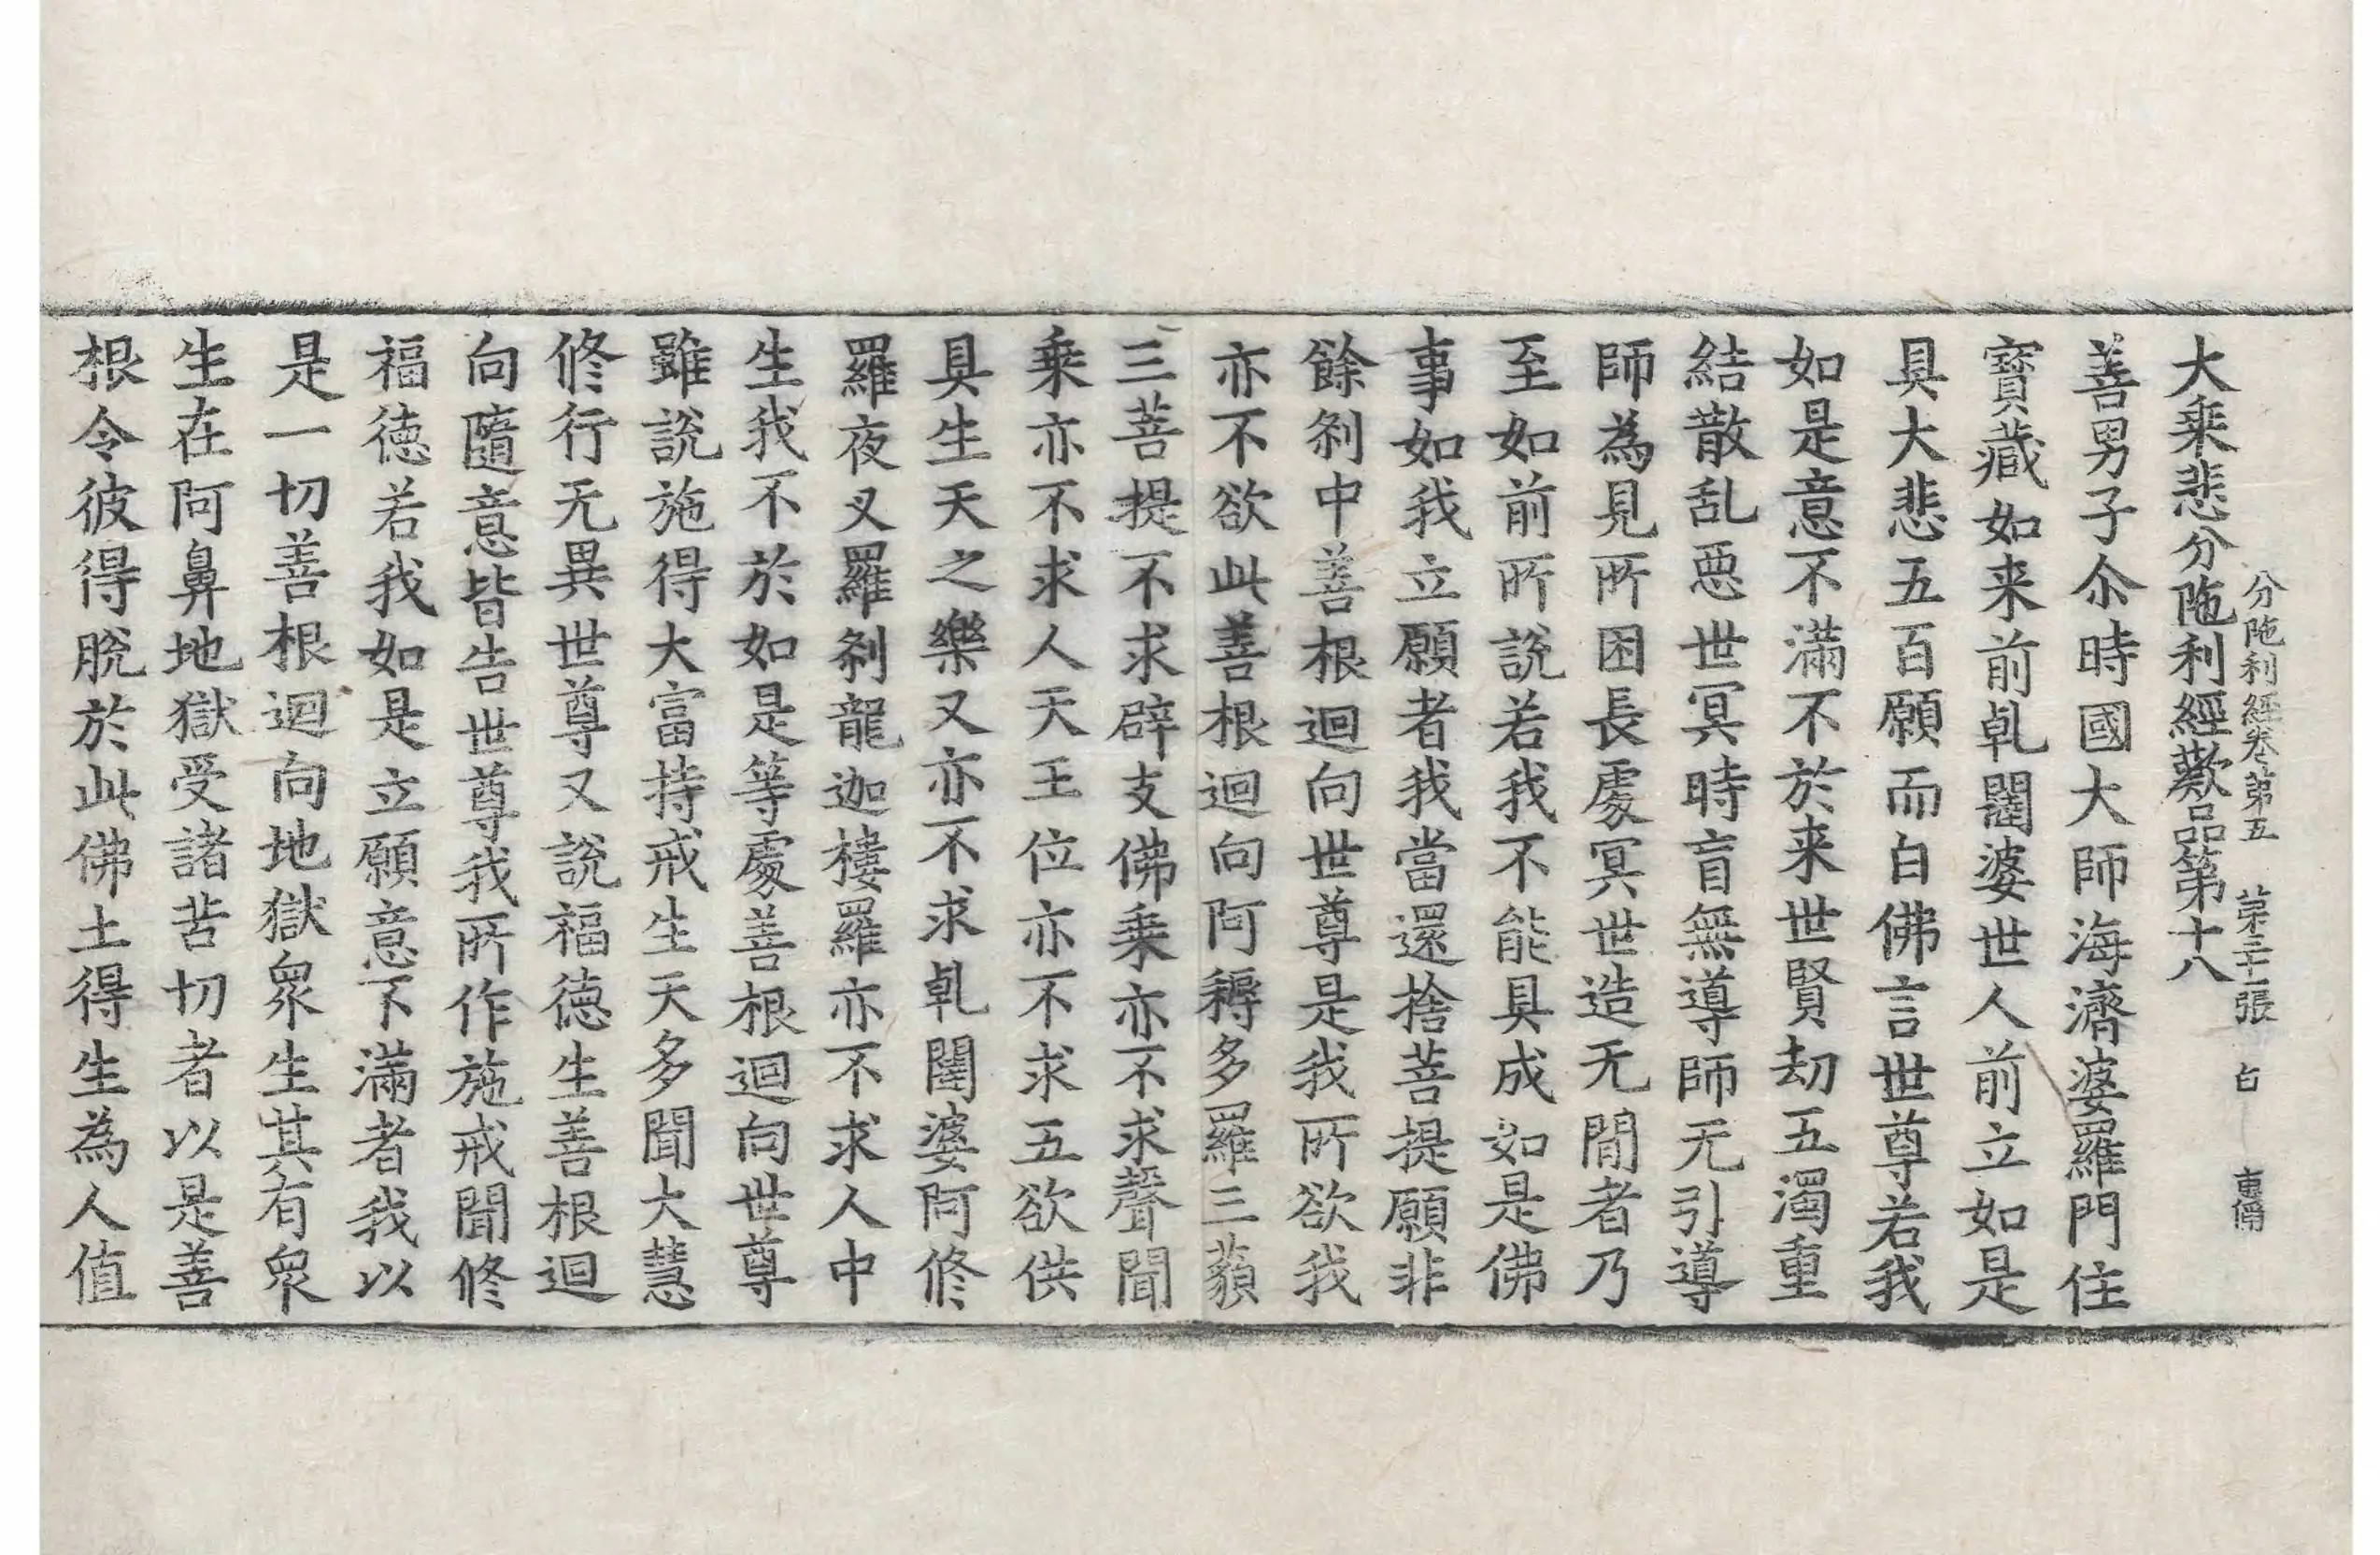 分陁利經卷第五 第二十一張 白
大乘悲分陁利經歎品第十八
善男子尒時國大師海濟婆羅門住
寶藏如来前乹闥婆世人前立如是
具大悲五百願而白佛言世尊若我
如是意不滿不於来世賢劫五濁重
結散乱惡世冥時盲無導師无引導
師為見所困長處冥世造无閒者乃
至如前所說若我不能具成如是佛
事如我立願者我當還捨菩提願非
餘剎中善根迴向世尊是我所欲我
亦不欲此善根迴向阿耨多羅三藐
三菩提不求辟支佛乘亦不求聲聞
乘亦不求人天王位亦不求五欲供
具生天之樂又亦不求乹闥婆阿修
羅夜叉羅剎龍迦樓羅亦不求人中
生我不於如是等處善根迴向世尊
雖說施得大富持戒生天多聞大慧
修行无異世尊又說福德生善根迴
向隨意皆告世尊我所作施戒聞修
福德若我如是立願意不滿者我以
是一切善根迴向地獄衆生其有衆
生在阿鼻地獄受諸苦切者以是善
根令彼得脫於此佛土得生為人值